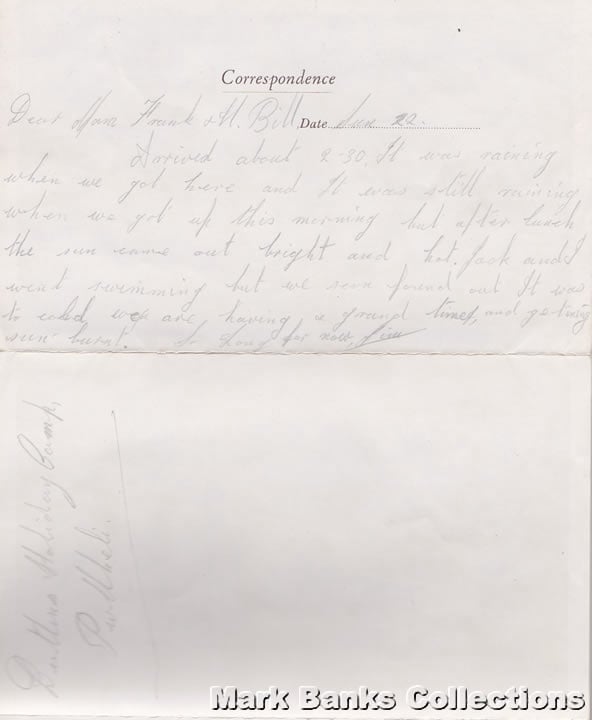 Correspondence
Dear Mam Frank & M. Bill, Date Sun 22.
Arrived about 2-30. It was raining
when we got here and It was still raining
when we got up this morning but after lunch
the sun came out bright and hot. Jack and I
went swimming but we soon found out It was
to cold we are having a grand time, and getting
sun burnt. So Long for now, Jim
Butlins Holiday Camp,
Pwllheli.
Mark Banks Collections